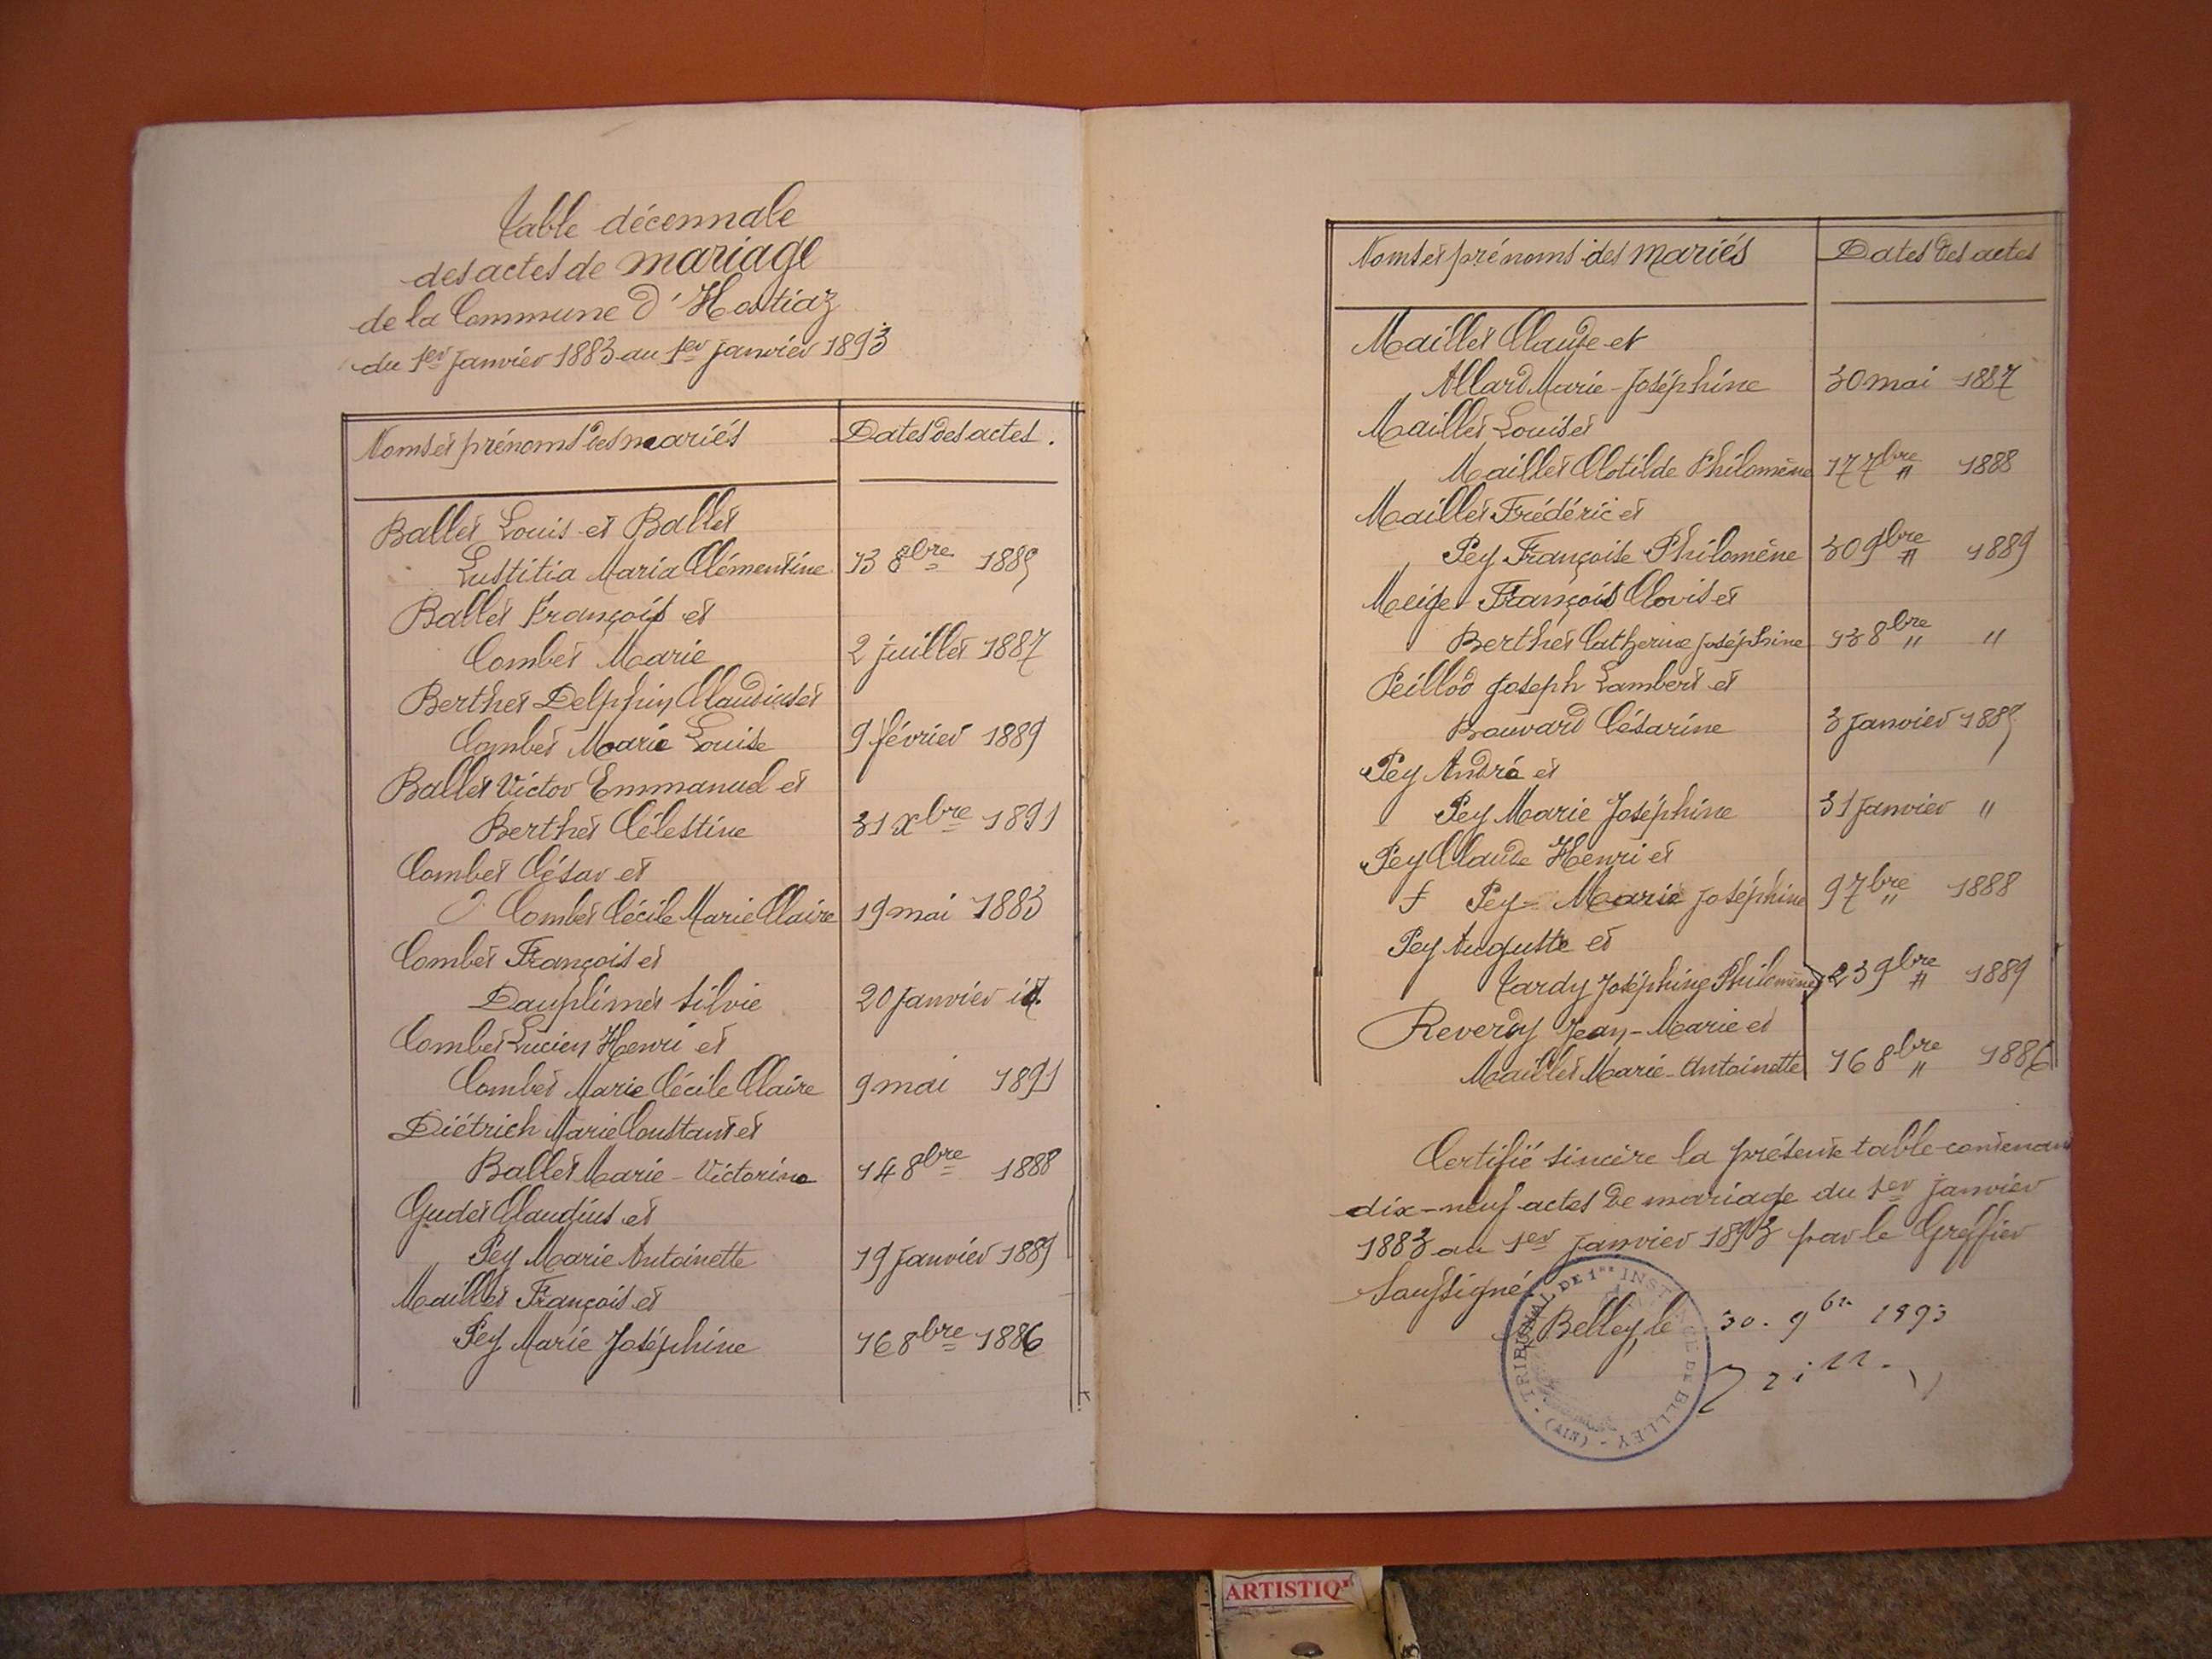 Table décennale
des actes de mariage
de la Commune d'Hostiaz
du 1er Janvier 1883 au 1er Janvier 1893
Noms et prénoms des mariés Dates des actes.
Ballet Louis et Ballet
Lustitia Maria Clémentine 13 8bre 1885
Ballet François et
Combet Marie 2 juillet 1887
Berthet Delphin Claudius et
Combet Marie Louise 9 février 1889
Ballet Victor Emmanuel et
Berthet Célestine 31 xbre 1891
Combet César et
Combet Cécile Marie Claire 19 mai 1883
Combet François et
Dauphinet Silvie 20 Janvier id.
Combet Lucien Henri et
Combet Marie Cécile Claire 9 mai 1891
Diétrich Marie Constant et
Ballet Marie-Victorine 14 8bre 1888
Gudet Claudius et
Pey Marie Antoinette 19 Janvier 1889
Maillet François et
Pey Marie Joséphine 16 8bre 1886
Noms et prénoms des mariés Dates des actes
Maillet Claude et
Allard Marie-Joséphine 30 mai 1887
Maillet Louis et
Maillet Clotilde Philomène 17 7bre " 1888
Maillet Frédéric et
Pey Françoise Philomène 30 9bre " 1889
Meige François Clovis et
Berthet Catherine Joséphine 8bre " "
Peillod Joseph Lambert et
Bouvard Césarine 3 Janvier 1885
Pey André et
Pey Marie Joséphine 31 Janvier "
Pey Claude Henri et
f Pey-Marie Joséphine 9 7bre " 1888
Pey Auguste et
Tardy Joséphine Philomène 23 9bre " 1889
Reverdy Jean-Marie et
Maillet Marie-Antoinette 16 8bre " 1886
Certifié sincère la présente table contenant
dix-neuf actes de mariage du 1er Janvier
1883 au 1er Janvier 1893 par le Greffier
Soussigné.
Belley, le 30. 9bre 1893
TRIBUNAL DE 1RE INSTANCE DE BELLEY - (AIN) -
ARTISTIQ